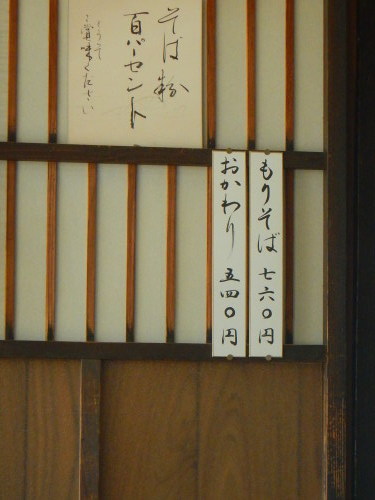 そば粉
百パーセント
どうぞ
ご賞味ください
もりそば 七六〇円
おかわり 五四〇円